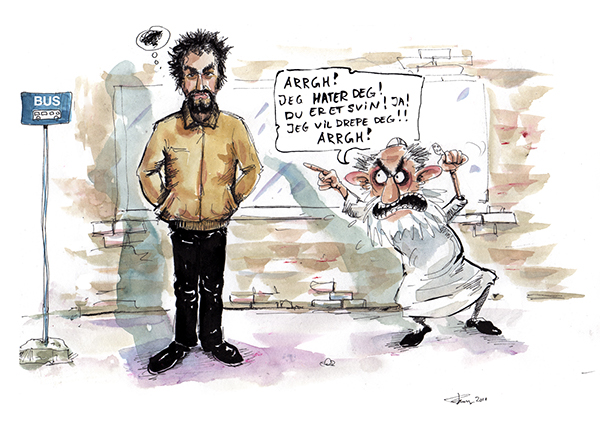 BUS
ARRGH!
JEG HATER DEG!
DU ER ET SVIN! JA!
JEG VIL DREPE DEG!!
ARRGH!